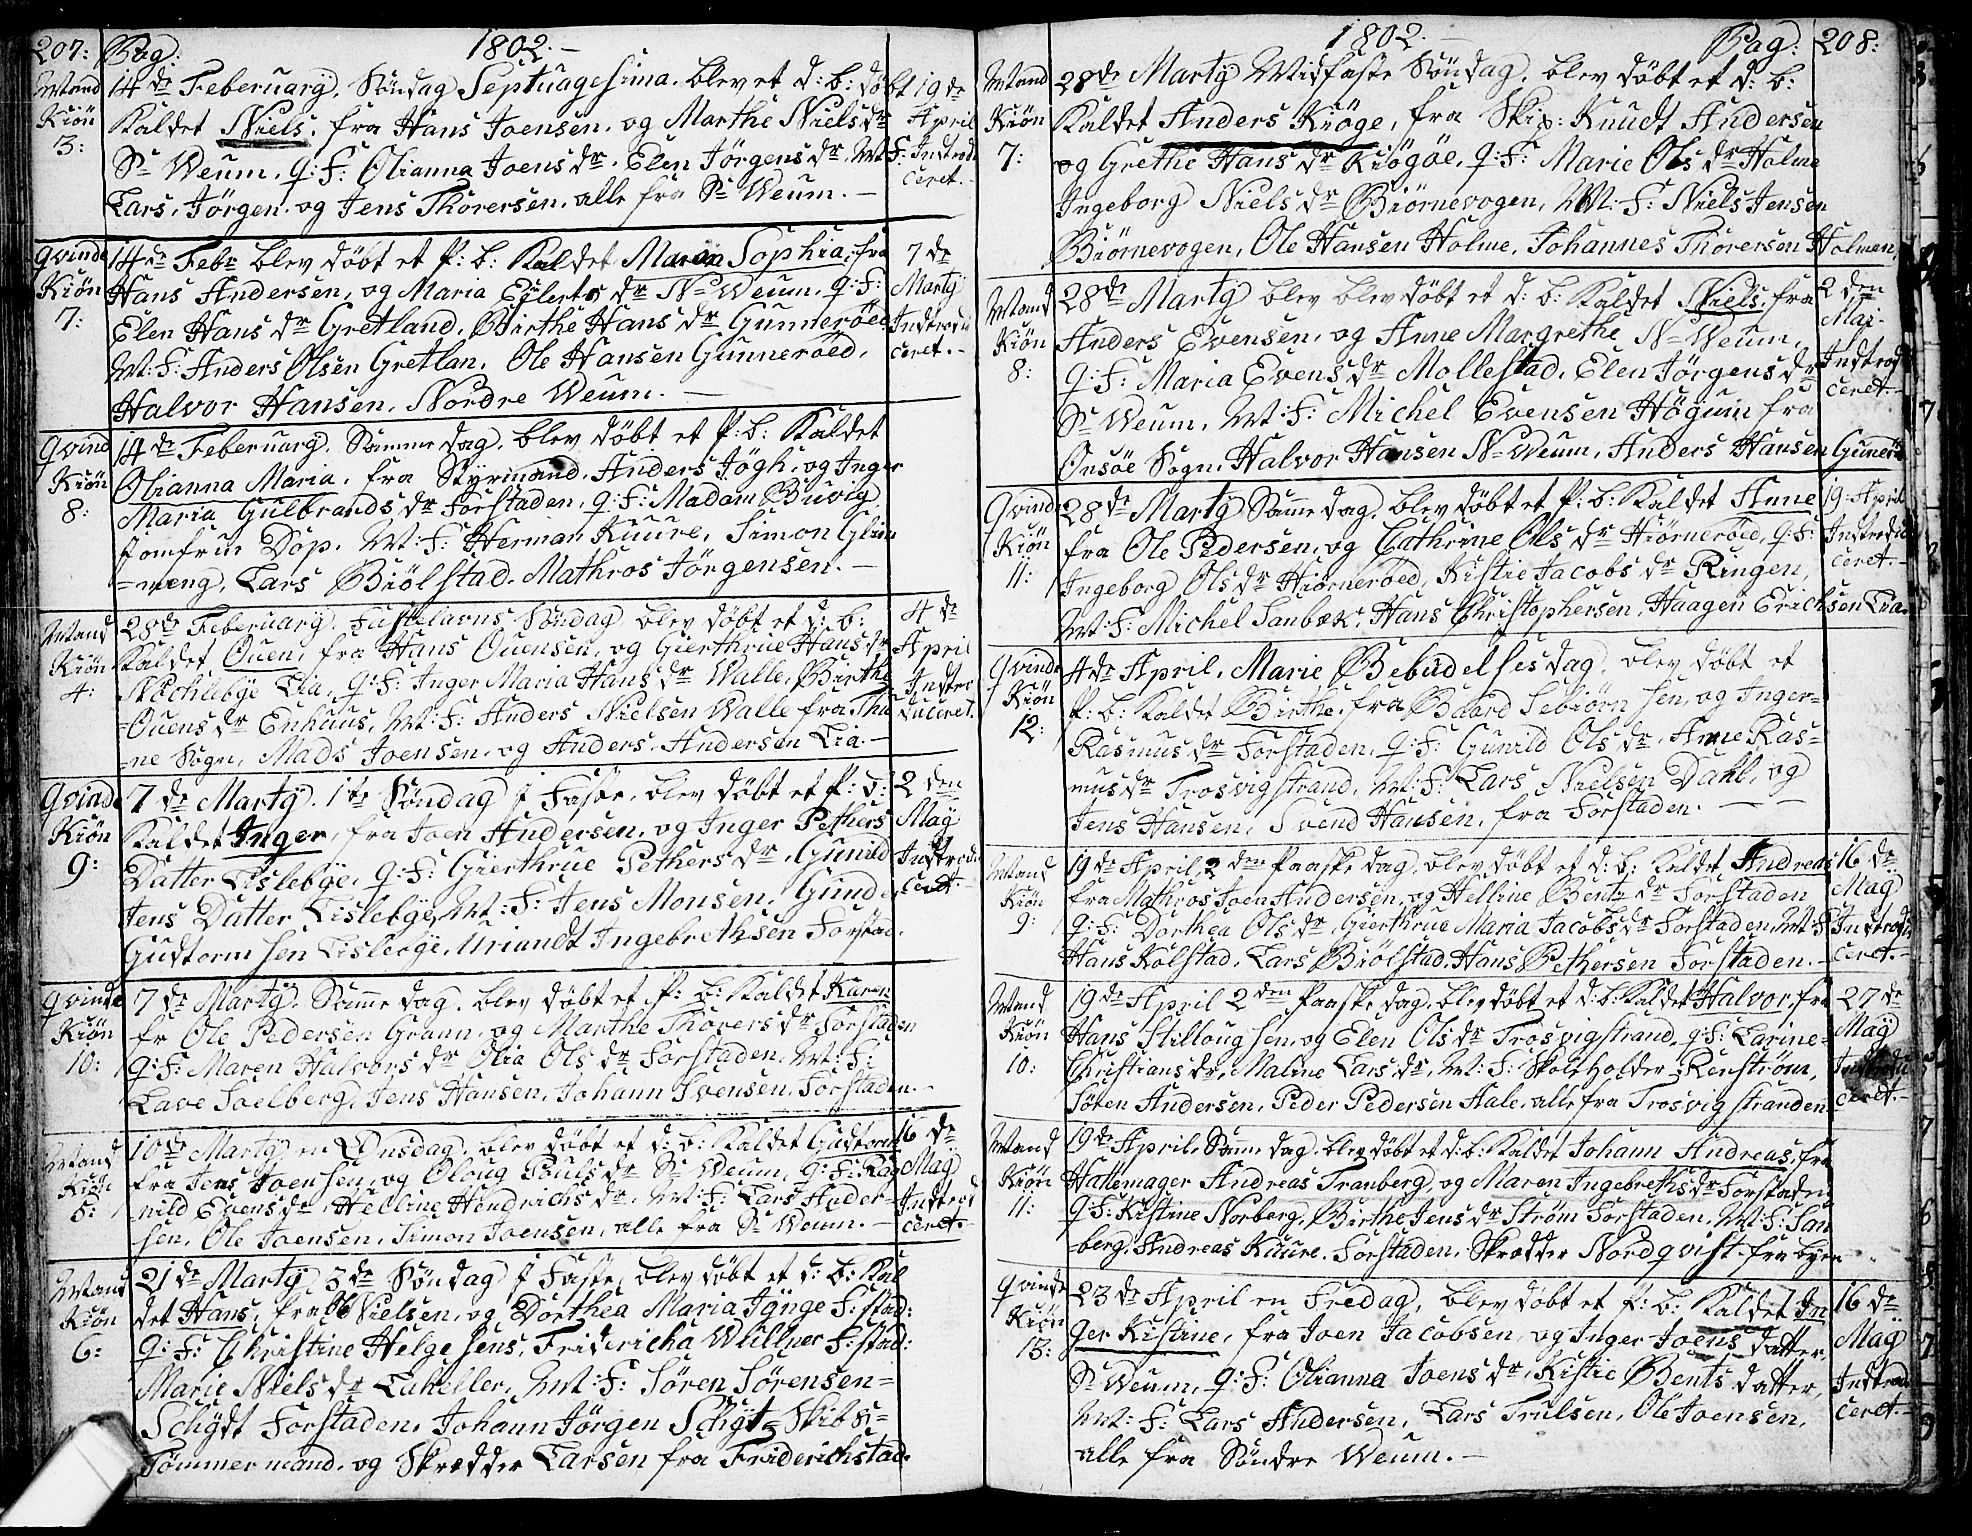 207: Pag: 1802.
Mand Kiøn 3:
14 de Februarÿ, Søndag Septuagesima. blev et d: b: døbt
Kaldet Niels. fra Hans Joensen. og Marthe Niels dr
Sr Weum, q: F: Olianna Joens dr. Elen Jørgens dr. M: F:
Lars, Jørgen. og Jens Thorersen. alle fra Sr Weum. —
19 de April Indtrod ceret. —
qvinde Kiøn 7:
14 de Febr blev døbt et p: b: Kaldet Maria Sophia, fra
Hans Andersen, og Maria Eÿlerts dr N= Weum. q: F:
Elen Hans dr Gretland, Birthe Hans dr Gunnerøed
M: F: Anders Olsen Gretlan, Ole Hansen Gunnerøed,
Halvor Hansen, Nordre Weum. —
7 de Martÿ Indtrodu ceret. —
qvind Kiøn 8:
14 de Februarÿ, Samme dag, blev døbt et p: b: Kaldet
Olianna Maria, fra Styrmand. Anders Jøgh. og Inger
Maria Gulbrands dr Forstaden, q: F: Madam Buvig,
Jomfrue Dop. M: F: Herman Kuure, Simon Glim
=meng, Lars Biølstad. Mathros Jørgensen. —
Mand Kiøn 4:
28 de Februarÿ. Fastelavns Søndag blev døbt et d: b:
Kaldet Ouen, fra Hans Ouensen, og Gierthrue Hans dr
Lia, q: F: Inger Maria Hans dr Walle, Birthe
=Ouens dr Enhuus, M: F: Anders Nielsen Walle fra Thu
=ne Sogn, Mads Joensen. og Anders. Andersen Lia. —
4 de April Indtro duceret.
Qvinde Kiøn 9:
7 de Martÿ. 1 te Søndag J Faste, blev døbt et p: b:
Kaldet Inger, fra Joen Andersen, og Inger Pethers
Datter Lislebÿe, q: F: Gierthrue Pethers dr, Gunild
Jens Datter Lislebÿe, M: F: Jens Monsen, Gund
Gudtorm sen Lislebÿe, Uriandt Ingebrethsen Forstad.
2 den Maÿ Indtrodu ceret. —
qvinde Kiøn 10:
7 de Martÿ. Samme dag. blev døbt et p: b: Kaldet Karen
fr Ole Pedersen Graun, og Marthe Thorers dr Forstaden
q: F: Maren Halvors dr Olia Ols dr Forstaden. M: F:
Lave Soelberg, Jens Hansen, Johann Svensen. Forstaden. —
Mand Kiøn 5:
10 de Martÿ en Onsdag, blev døbt et d: b: Kaldet Gudtorm
fra Jens Joensen, og Oloug Pouls dr Sr Weum, q: F: Rag
nild Evens dr, Helline Hendrichs dr, M: F: Lars Ander=
sen, Ole Joensen, Simon Joensen, alle fra Sr Weum. —
16 de Maÿ Indtrod ceret. —
Mand Kiøn 6:
21 de Martÿ 3 de Søndag J Faste, blev døbt et d: b: Kal
det Hans, fra Nielsen, og Dorthea Maria Jÿnge F: stad:
q: F: Christine Helge sens, Fridericha Wüllner F: stad:
Marie Niels dr Lakeller, M: F: Søren Sørensen=
Schÿdt Forstaden, Johann Jørgen Schÿt= Skibs=
Tømmermand. og Skrædder Larsen fra Friderichstad.
1802. Pag: 208:
Mand Kiøn 7:
28 de Martÿ Midfaste Søndag, blev døbt et d: b:
Kaldet Anders Kiøge, fra Skip: Knudt Andersen
og Grethe Hans dr Kiøgøe, q: F: Marie Ols dr Holme
Ingeborg Niels dr Biørnevogen, M: F: Niels Jensen
Biørnevogen, Ole Hansen Holme, Johannes Thorersen Holmen,
Mand Kiøn 8:
28 de Martÿ blev blev døbt et d: b: Kaldet Niels, fra
Anders Evensen, og Anne Margrethe N= Weum,
q: F: Maria Evens dr Mollestad, Elen Jørgens dr
Sr Weum, M: F: Michel Evensen Høgum fra
Onsøe Sogn, Halvor Hansen N= Weum, Anders Hansen Gunerö
2 den Maj. Indtrod ceret. —
Qvinde Kiøn 11:
28 de Martÿ Samme dag, blev døbt et p: b: Kaldet Anne
fra Ole Pedersen, og Cathrine Ols dr Hiørnerøed, q: F:
Ingeborg Ols dr Hiørnerøed, Kistie Jacobs dr Ringen,
M: F: Michel Sanbæk, Hans Christophersen, Haagen Erichsen Lia.
19. April Indtrodu ceret. —
qvinde Kiøn 12:
4 de April, Marie Bebudelses dag. blev døbt et
p: b: Kaldet Birthe, fra Baard Sebiørn sen, og Inger=
Rasmus dr Forstaden, q: F: Gunild Ols dr, Anne Ras=
mus dr Trosvigstrand, M: F: Lars Nielsen Dahl, og
Jens Hansen, Svend Hansen, fra Forstaden. — —
Mand Kiøn 9:
19 de April, 2 den Paaske dag, blev døbt et d: b: Kaldet Andreas
fra Mathros Joen Andersen, og Helline Bentz dr Forstaden
q: F: Dorthea Ols dr, Gierthrue Maria Jacobs dr Forstaden, M: F
Hans Kolstad, Lars Biølstad, Hans Pethersen Forstaden. —
16 de Maÿ Indtrodu ceret. —
Mand Kiøn 10:
19 de April 2 den Paaske dag, blev døbt et d: b: Kaldet Halvor, fra
Hans Stilloug sen, og Elen Ols dr Trosvigstrand, q: F: Larine=
Christians dr, Maline Lars dr, M: F: Skoleholder Renstrøm,
Søren Andersen, Peder Pedersen Aale, alle fra Trosvigstranden.
27 de Maÿ Indtrodu ceret. —
Mand Kiøn 11:
19 de April, Samme dag. blev døbt et d: b: Kaldet Johann Andreas, fra
Hattemager Andreas Tranberg, og Maren Ingebreths dr Forstaden
q: F: Kistine Norberg, Birthe Jens dr Strøm Forstaden, M: F: San
=berg, Andreas Kuure, Forstaden, Skrædder Nordqvist fra byen
qvinde Kiøn 13:
23 de April en Fredag, blev døbt et p: b: Kaldet In
ger Kistine, fra Joen Jacobsen, og Inger Joens datter
Sr Weum, q: F: Olianna Joens dr, Kistie Bents datter,
M: F: Lars Andersen, Lars Trulsen, Ole Joensen,
alle fra Søndre Weum. —
16 de Maÿ Indtrodu ceret. —